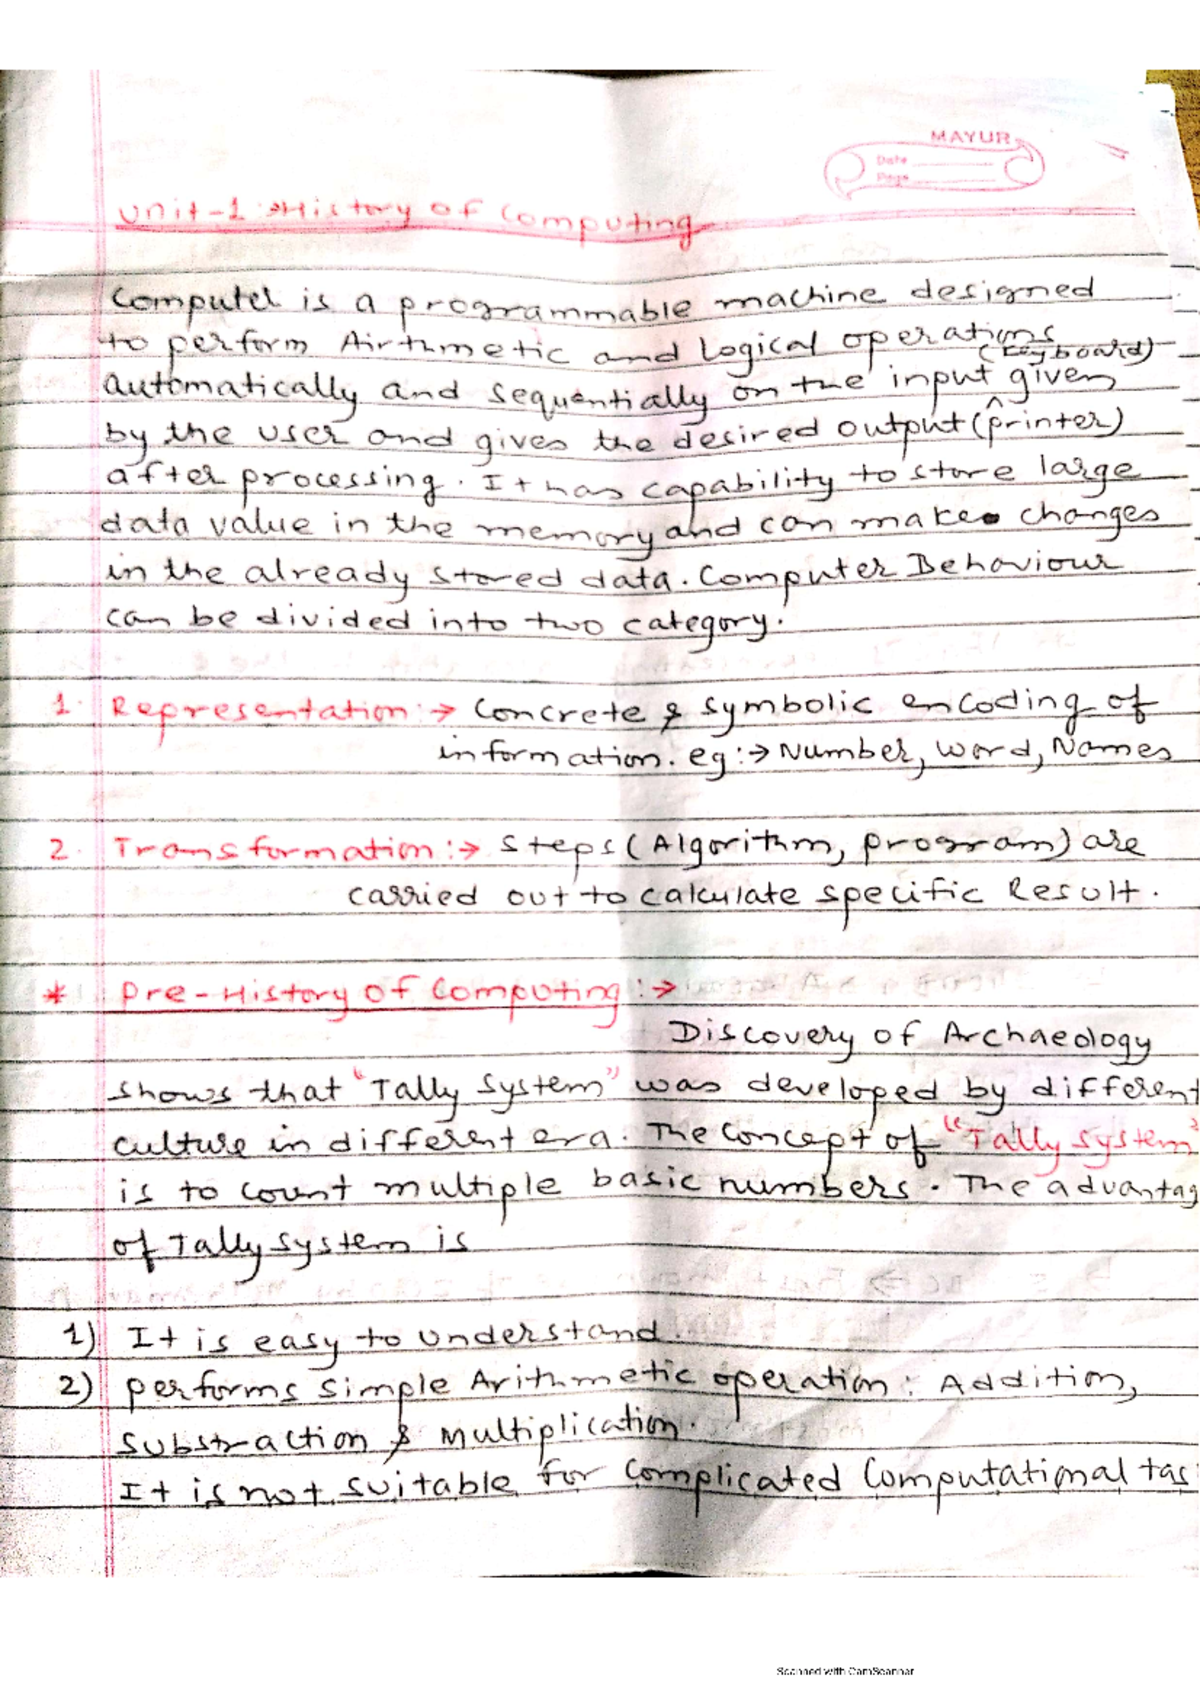 MAYUR
Date
Page
Unit-1 :→History of Computing
Computer is a programmable machine designed
to perform Airthmetic and Logical operations
(Keyboard)
automatically and sequentially on the input ^ given
by the user and gives the desired output (printer)
after processing. It has capability to store large
data value in the memory and can make changes
in the already stored data. Computer Behaviour
can be divided into two category.
1. Representation :→ Concrete & symbolic encoding of
information. eg :→ Number, word, Names
2. Transformation :→ Steps (Algorithm, program) are
carried out to calculate specific Result.
* Pre-History of Computing :→
Discovery of Archaeology
shows that "Tally System" was developed by different
culture in different era. The concept of "Tally system"
is to count multiple basic numbers. The advantag
of Tally system is
1) It is easy to understand.
2) performs simple Arithmetic operation : Addition,
Substraction & Multiplication.
It is not suitable for Complicated Computational tas
Scanned with CamScanner